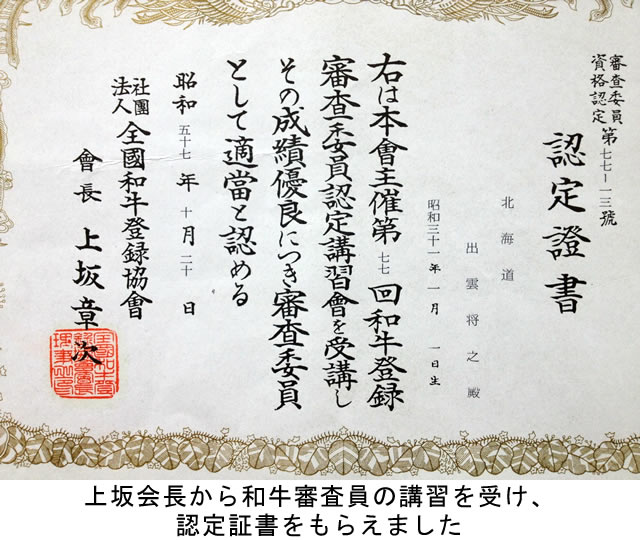 認定證書
審査委員
資格認定
第七七一一三號
北海道
出雲将之殿
昭和三十一年一月一日生
右は本會主催第七七回和牛登録
審査委員認定講習會を受講し
その成績優良につき審査委員
として適當と認める
昭和五十七年十月二十日
社團
法人
全國和牛登録協會
會長上坂章次
上坂会長から和牛審査員の講習を受け、
認定証書をもらえました